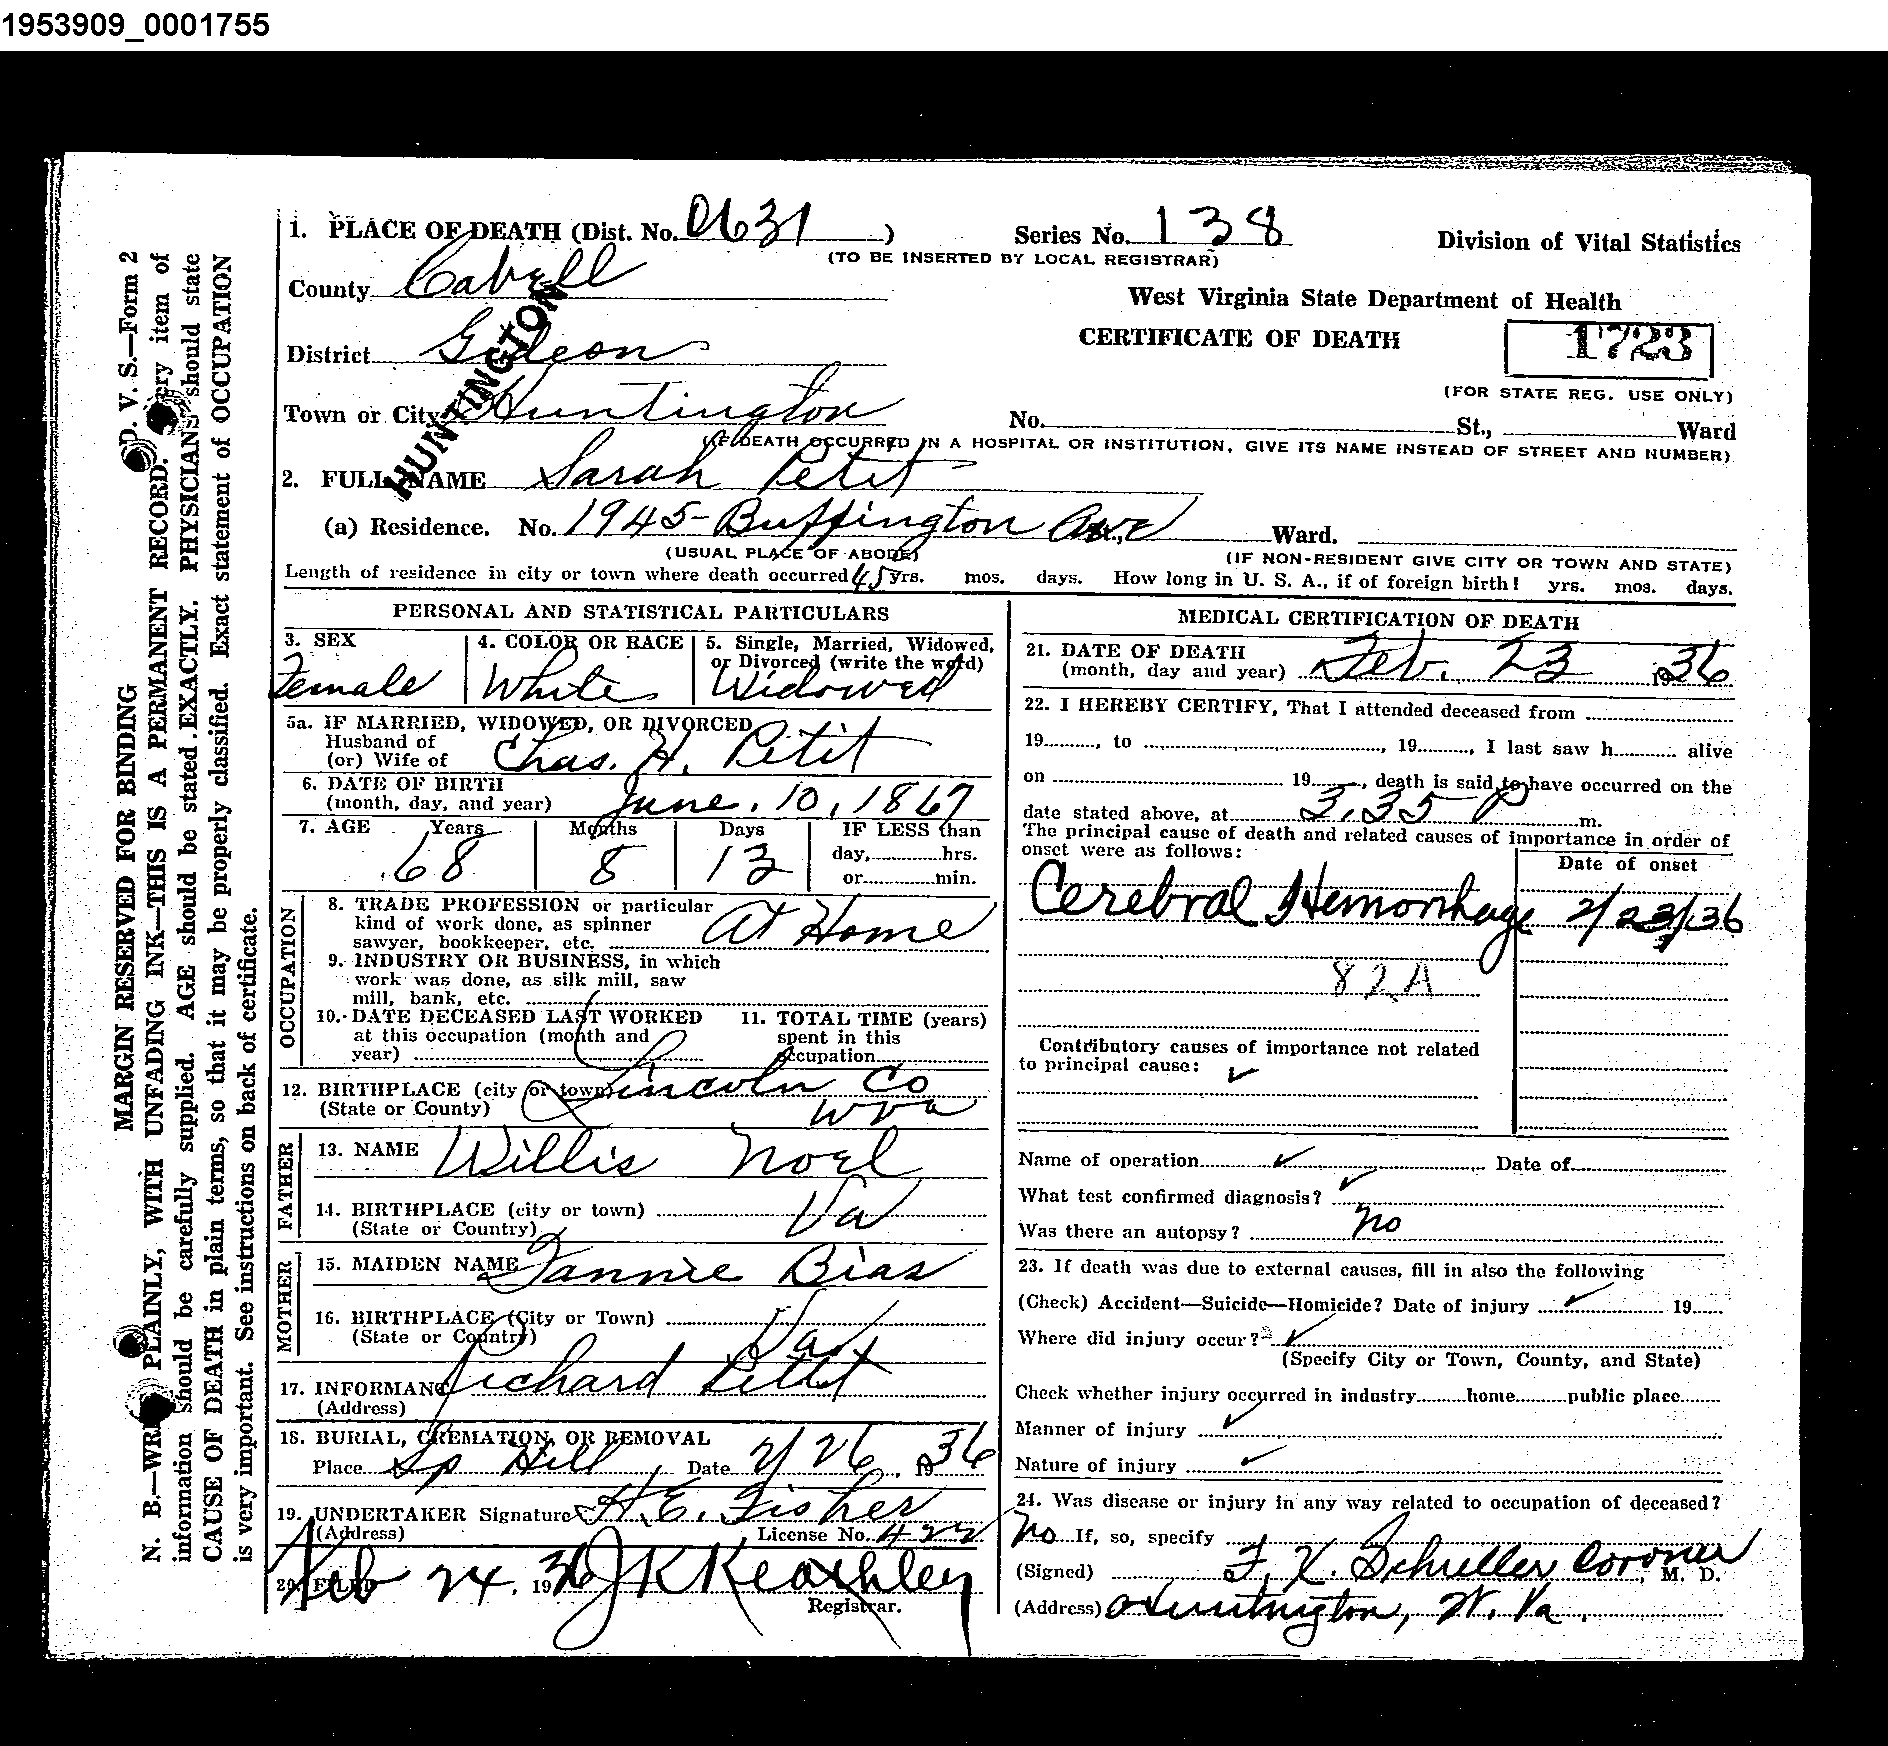 1953909_0001755
1. PLACE OF DEATH (Dist. No. 0631 )
Series No. 138
Division of Vital Statistics
(TO BE INSERTED BY LOCAL REGISTRAR)
County Cabell
West Virginia State Department of Health
CERTIFICATE OF DEATH
1723
(FOR STATE REG. USE ONLY)
District Gideon
HUNTINGTON
Town or City Huntington
No. St., Ward
(IF DEATH OCCURRED IN A HOSPITAL OR INSTITUTION, GIVE ITS NAME INSTEAD OF STREET AND NUMBER)
2. FULL NAME Sarah Petit
(a) Residence. No. 1945 - Buffington Ave Ward.
(USUAL PLACE OF ABODE)
(IF NON-RESIDENT GIVE CITY OR TOWN AND STATE)
Length of residence in city or town where death occurred 45 yrs. mos. days. How long in U. S. A., if of foreign birth! yrs. mos. days.
PERSONAL AND STATISTICAL PARTICULARS
3. SEX
Female
4. COLOR OR RACE
White
5. Single, Married, Widowed,
or Divorced (write the word)
Widowed
5a. IF MARRIED, WIDOWED, OR DIVORCED
Husband of
(or) Wife of Chas. H. Petit
6. DATE OF BIRTH
(month, day, and year) June. 10, 1867
7. AGE Years Months Days IF LESS than
68 8 13
day, hrs.
or min.
OCCUPATION
8. TRADE PROFESSION or particular
kind of work done, as spinner
sawyer, bookkeeper, etc. At Home
9. INDUSTRY OR BUSINESS, in which
work was done, as silk mill, saw
mill, bank, etc.
10. DATE DECEASED LAST WORKED
at this occupation (month and
year)
11. TOTAL TIME (years)
spent in this
occupation
12. BIRTHPLACE (city or town) Lincoln Co
(State or County) W Va
FATHER
13. NAME Willis Noel
14. BIRTHPLACE (city or town) Va
(State or Country)
MOTHER
15. MAIDEN NAME Fannie Bias
16. BIRTHPLACE (City or Town) Va
(State or Country)
17. INFORMANT Richard Petit
(Address)
18. BURIAL, CREMATION, OR REMOVAL
Place Sp Hill, Date 2/26, 1936
19. UNDERTAKER Signature H. E. Fisher
(Address) License No. 422
20. FILED Feb 24. 1936 J K Keathley
Registrar.
MEDICAL CERTIFICATION OF DEATH
21. DATE OF DEATH
(month, day and year) Feb. 23 1936
22. I HEREBY CERTIFY, That I attended deceased from
19 , to , 19 , I last saw h alive
on 19 , death is said to have occurred on the
date stated above, at 3.35 P m.
The principal cause of death and related causes of importance in order of
onset were as follows:
Date of onset
Cerebral Hemorrhage 2/23/36
82A
Contributory causes of importance not related
to principal cause: ✓
Name of operation ✓ Date of
What test confirmed diagnosis? ✓
Was there an autopsy? no
23. If death was due to external causes, fill in also the following
(Check) Accident—Suicide—Homicide? Date of injury ✓ 19
Where did injury occur? ✓
(Specify City or Town, County, and State)
Check whether injury occurred in industry home public place
Manner of injury ✓
Nature of injury ✓
24. Was disease or injury in any way related to occupation of deceased?
no If, so, specify
(Signed) F. X. Schuller Coroner, M. D.
(Address) Huntington, W. Va.
D. V. S.—Form 2
MARGIN RESERVED FOR BINDING
N. B.—WRITE PLAINLY, WITH UNFADING INK—THIS IS A PERMANENT RECORD. Every item of
information should be carefully supplied. AGE should be stated EXACTLY. PHYSICIANS should state
CAUSE OF DEATH in plain terms, so that it may be properly classified. Exact statement of OCCUPATION
is very important. See instructions on back of certificate.